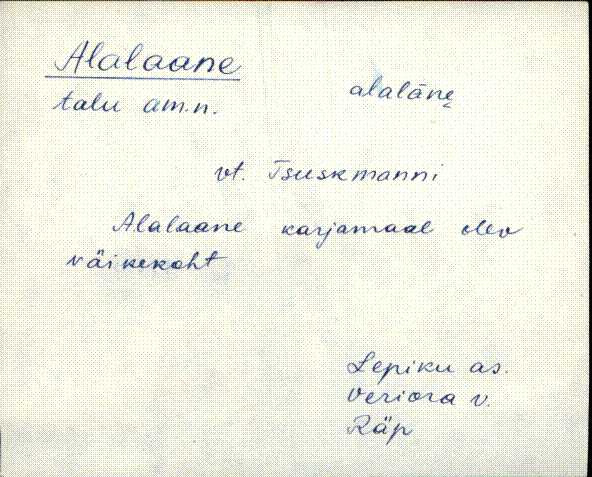 Alalaane
talu am.n. alalāne̬
vt. Tsuskmanni
Alalaane karjamaal olev
väikekoht
Lepiku as.
Veriora v.
Räp